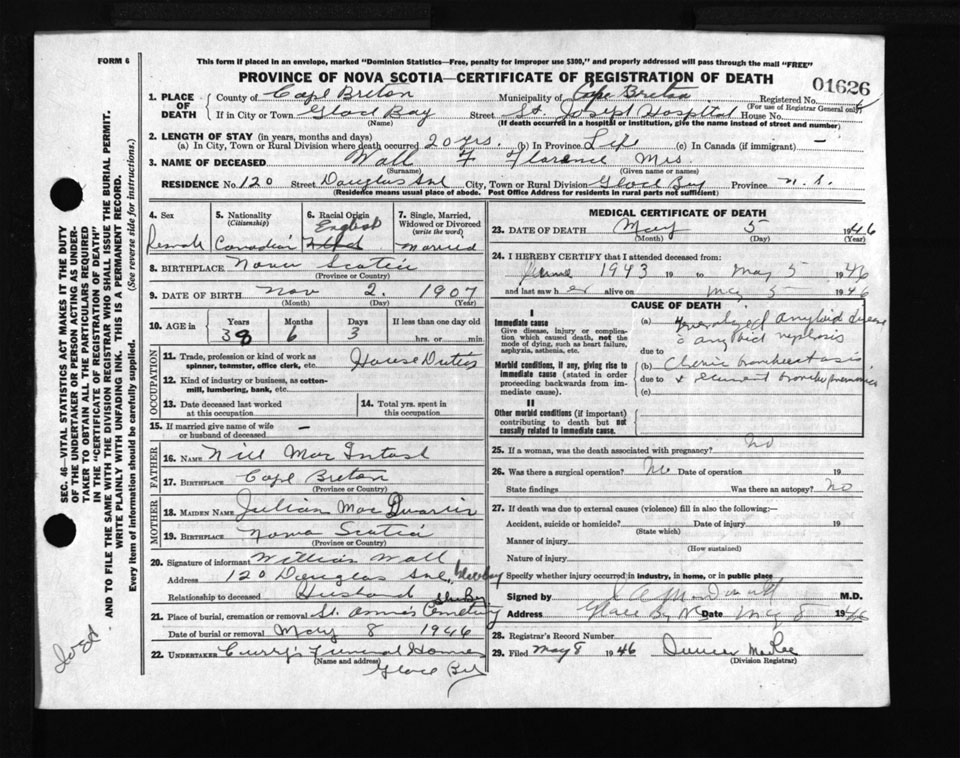 FORM 6
This form if placed in an envelope, marked "Dominion Statistics—Free, penalty for improper use $300," and properly addressed will pass through the mail "FREE"
PROVINCE OF NOVA SCOTIA—CERTIFICATE OF REGISTRATION OF DEATH
01626
1. PLACE OF DEATH { County of Cape Breton Municipality of Cape Breton Registered No.
(For use of Registrar General only)
If in City or Town Glace Bay Street St Joseph Hospital House No.
(Name) (If death occurred in a hospital or institution, give the name instead of street and number)
2. LENGTH OF STAY (in years, months and days)
(a) In City, Town or Rural Division where death occurred 20 yrs. (b) In Province Life (c) In Canada (if immigrant) —
3. NAME OF DECEASED Wall F Florence Mrs.
(Surname) (Given name or names)
RESIDENCE No. 120 Street Douglas Ave City, Town or Rural Division Glace Bay Province N.S.
(Residence means usual place of abode. Post Office Address for residents in rural parts not sufficient)
4. Sex Female
5. Nationality (Citizenship) Canadian
6. Racial Origin English
7. Single, Married, Widowed or Divorced (write the word) Married
8. BIRTHPLACE Nova Scotia
(Province or Country)
9. DATE OF BIRTH Nov 2. 1907
(Month) (Day) (Year)
10. AGE in { Years 38 Months 6 Days 3 If less than one day old
hrs. or min.
OCCUPATION
11. Trade, profession or kind of work as spinner, teamster, office clerk, etc. House Duties
12. Kind of industry or business, as cotton-mill, lumbering, bank, etc.
13. Date deceased last worked at this occupation
14. Total yrs. spent in this occupation
15. If married give name of wife or husband of deceased —
FATHER
16. NAME Mac Intosh
17. BIRTHPLACE Cape Breton
(Province or Country)
MOTHER
18. MAIDEN NAME Julian Mac
19. BIRTHPLACE Nova Scotia
(Province or Country)
20. Signature of informant William Wall
Address 120 Douglas Ave, Glace Bay
Relationship to deceased Husband
21. Place of burial, cremation or removal St. Anne's Cemetery
Date of burial or removal May 8 1946
22. UNDERTAKER Curry's Funeral Home
(Name and address)
Glace Bay
MEDICAL CERTIFICATE OF DEATH
23. DATE OF DEATH May 5 1946
(Month) (Day) (Year)
24. I HEREBY CERTIFY that I attended deceased from:
June 1943 19 to May 5 1946
and last saw her alive on May 5 1946
CAUSE OF DEATH
I
Immediate cause
Give disease, injury or complication which caused death, not the mode of dying, such as heart failure, asphyxia, asthenia, etc.
(a) amyloid disease
amyloid nephosis
due to
Morbid conditions, if any, giving rise to immediate cause (stated in order proceeding backwards from immediate cause).
(b) bronchiectasis
due to & recurrent broncho pneumonia
(c)
II
Other morbid conditions (if important) contributing to death but not causally related to immediate cause.
25. If a woman, was the death associated with pregnancy? No
26. Was there a surgical operation? No Date of operation 19
State findings Was there an autopsy? No
27. If death was due to external causes (violence) fill in also the following:—
Accident, suicide or homicide? Date of injury 19
(State which)
Manner of injury
(How sustained)
Nature of injury
Specify whether injury occurred in industry, in home, or in public place
Signed by M.D.
Address Glace Bay NS Date May 8 1946
28. Registrar's Record Number
29. Filed May 8 1946 Duncan MacRae
(Division Registrar)
SEC. 46—VITAL STATISTICS ACT MAKES IT THE DUTY
OF THE UNDERTAKER OR PERSON ACTING AS UNDER-
TAKER TO OBTAIN ALL THE PARTICULARS REQUIRED
IN THE "CERTIFICATE OF REGISTRATION OF DEATH"
AND TO FILE THE SAME WITH THE DIVISION REGISTRAR WHO SHALL ISSUE THE BURIAL PERMIT.
WRITE PLAINLY WITH UNFADING INK. THIS IS A PERMANENT RECORD.
Every item of information should be carefully supplied. (See reverse side for instructions.)